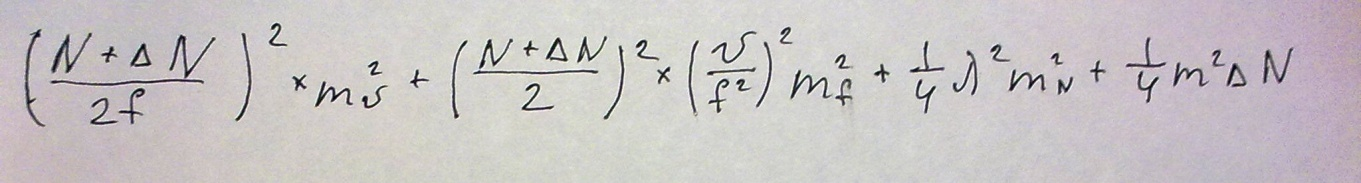 $\left(\frac{N+\Delta N}{2f}\right)^2 \times m_v^2 + \left(\frac{N+\Delta N}{2}\right)^2 \times \left(\frac{v}{f^2}\right)^2 m_f^2 + \frac{1}{4} \lambda^2 m_N^2 + \frac{1}{4} m^2 \Delta N$